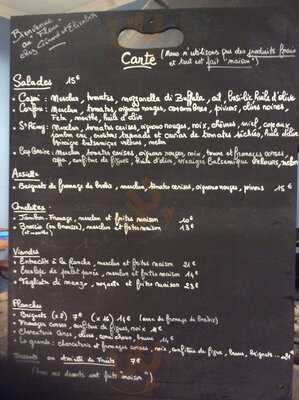 Bienvenue
au "Fleur"
chez Ginou et Elisabeth
Carte (Nous n'utilisons que des produits frais
et tout est fait "maison")
Salades 15€
Mesclun, tomates, mozzarella di Bufala, ail, basilic, huile d'olive
Mesclun, tomates, oignons rouges, concombres, poivrons, olives noires,
Feta, menthe, huile d'olive
St Rémy: mesclun, tomates cerises, oignons rouges, noix, chèvres, miel,
jambon cru, tapenade et caviar de tomates séchées, huile d'olive
vinaigre balsamique
mesclun, tomates cerises, oignons rouges, noix, tomme et fromages corses,
coppa, confiture de figues, huile d'olive, vinaigre balsamique
Assiette
Beignets de fromage de brebis, mesclun, tomates cerises, oignons rouges, poivrons 15€
Omelettes
Jambon-Fromage, mesclun et frites maison 10€
Broccio (en brousse), mesclun et frites maison 13€
(et menthe)
Viandes
Entrecôte à la plancha, mesclun et frites maison 21€
Escalope de poulet panée, mesclun et frites maison 14€
Tagliata di manzo, roquette et frites maison 23€
Planches
Beignets (x8) 7€, (x16) 14€ (avec du fromage de brebis)
Fromages corses, confiture de figues, noix
Charcuterie corse, 14€
La grande: charcuterie et fromages corses, noix, confiture de figue, beignets
Desserts ou Assiette de Fruits 7€
(Tous nos desserts sont faits "maison")